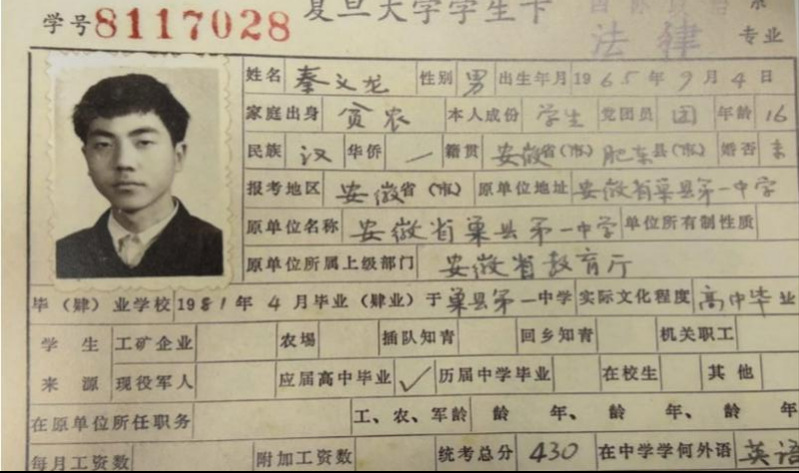 学号8117028 复旦大学学生卡 国际政治系
法律专业
姓名 秦文龙 性别 男 出生年月1965年9月4日
家庭出身 贫农 本人成份 学生 党团员 团 年龄 16
民族 汉 华侨 一 籍贯 安徽省(市) 肥东县(市) 婚否 未
报考地区 安徽省(市) 原单位地址 安徽省巢县第一中学
原单位名称 安徽省巢县第一中学 单位所有制性质
原单位所属上级部门 安徽省教育厅
毕(肄)业学校 1981年4月毕业(肄业)于巢县第一中学 实际文化程度 高中毕业
学生 工矿企业 农场 插队知青 回乡知青 机关职工
来源 现役军人 应届高中毕业 ✓ 历届中学毕业 在校生 其他
在原单位所任职务 工、农、军龄 龄 年、 龄 年、 龄 年
每月工资数 附加工资数 统考总分 430 在中学学何外语 英语